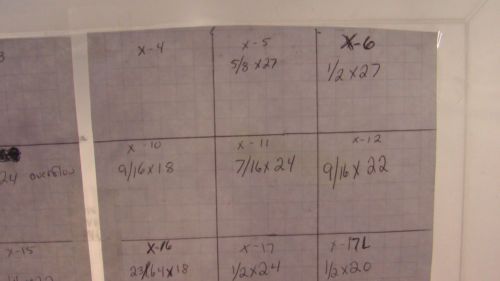 3
x-4
x-5
5/8 x 27
X-6
1/2 x 27
24 overflow
x-10
9/16 x 18
x-11
7/16 x 24
x-12
9/16 x 22
x-15
X-16
23/64 x 18
x-17
1/2 x 24
x-17L
1/2 x 20